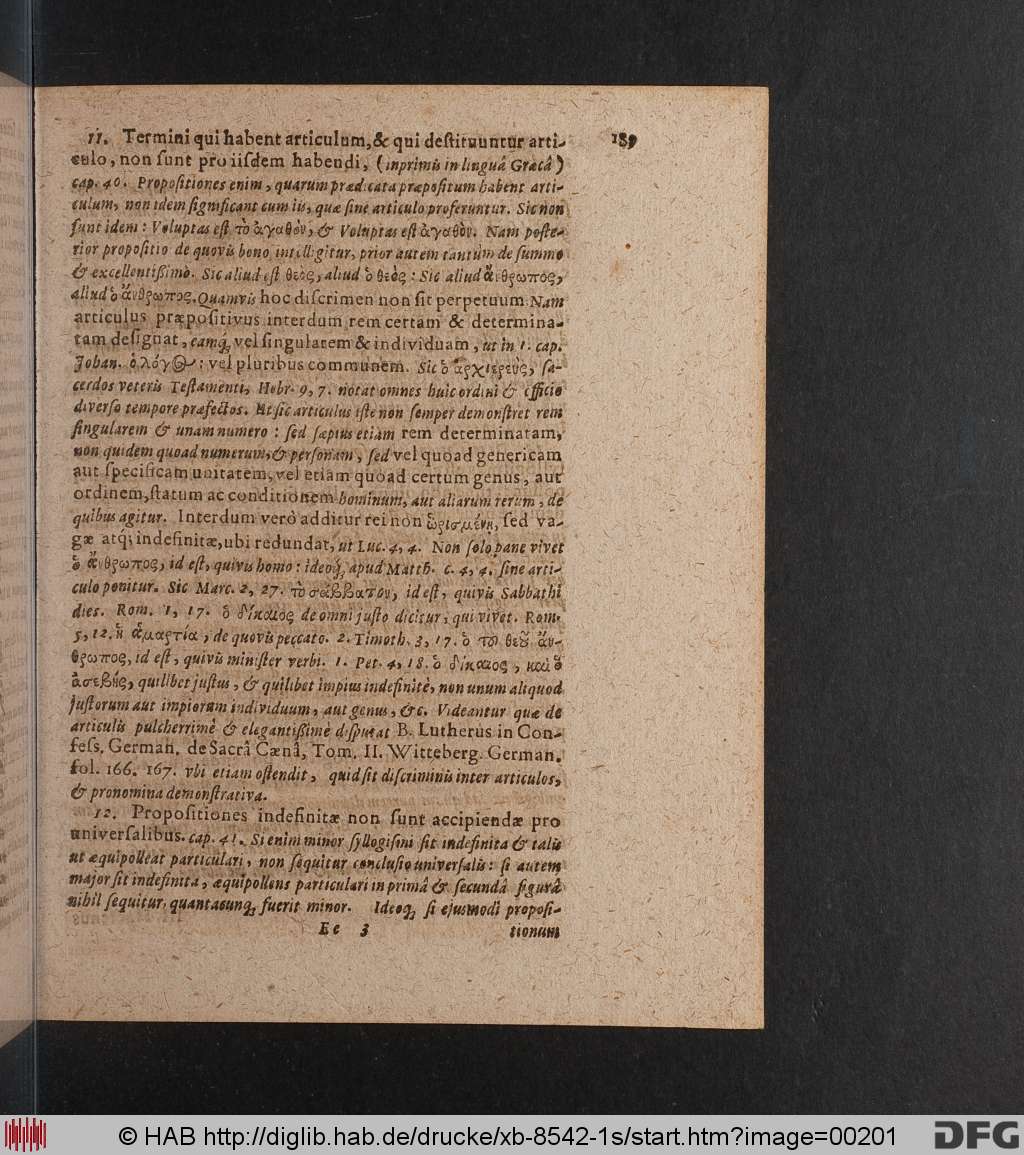 189
11. Termini qui habent articulum, & qui destituuntur arti-
culo, non sunt pro iisdem habendi, (inprimis in linguâ Græcâ)
cap. 40. Propositiones enim, quarum prædicata præpositum habent arti-
culum, non idem significant cum iis, quæ sine articulo proferuntur. Sic non
sunt idem: Voluptas est τὸ ἀγαθὸν, & Voluptas est ἀγαθὸν. Nam poste-
rior propositio de quovis bono intelligitur, prior autem tantùm de summo
& excellentißimo. Sic aliud est θεὸς, aliud ὁ θεὸς: Sic aliud ἄνθρωπος,
aliud ὁ ἄνθρωπος. Quamvis hoc discrimen non sit perpetuum. Nam
articulus præpositivus interdum rem certam & determina-
tam designat, eamq́; vel singularem & individuam, ut in 1. cap.
Johan. ὁ λόγος: vel pluribus communem. Sic ὁ ἀρχιερεὺς, sa-
cerdos veteris Testamenti, Hebr. 9, 7. notat omnes huic ordini & officio
diverso tempore præfectos. Ut sic articulus iste non semper demonstret rem
singularem & unam numero: sed sæpius etiam rem determinatam,
non quidem quoad numerum, & personam, sed vel quoad genericam
aut specificam unitatem, vel etiam quoad certum genus, aut
ordinem, statum ac conditionem hominum, aut aliarum rerum, de
quibus agitur. Interdum verò additur rei non ὡρισμένῃ, sed va-
gæ atq́; indefinitæ, ubi redundat, ut Luc. 4, 4. Non solo pane vivet
ὁ ἄνθρωπος, id est, quivis homo: ideoq́; apud Matth. c. 4, 4. sine arti-
culo ponitur. Sic Marc. 2, 27. τὸ σάββατον, id est, quivis Sabbathi
dies. Rom. 1, 17. ὁ δίκαιος de omni justo dicitur, qui vivet. Rom.
5, 12. ἡ ἁμαρτία, de quovis peccato. 2. Timoth. 3, 17. ὁ τοῦ θεοῦ ἄν-
θρωπος, id est, quivis minister verbi. 1. Pet. 4, 18. ὁ δίκαιος, καὶ ὁ
ἀσεβὴς, quilibet justus, & quilibet impius indefinitè, non unum aliquod
justorum aut impiorum individuum, aut genus, &c. Videantur quæ de
articulis pulcherrimè & elegantißimè disputat B. Lutherus in Con-
fess. German. de Sacrâ Cænâ, Tom. II. Witteberg. German.
fol. 166. 167. ubi etiam ostendit, quid sit discriminis inter articulos,
& pronomina demonstrativa.
12. Propositiones indefinitæ non sunt accipiendæ pro
universalibus. cap. 41. Si enim minor syllogismi sit indefinita & talis
ut æquipolleat particulari, non sequitur conclusio universalis: si autem
major sit indefinita, æquipollens particulari in primâ & secundâ figurâ
nihil sequitur, quantacunq; fuerit minor. Ideoq; si ejusmodi proposi-
Ee 3 tionum
© HAB http://diglib.hab.de/drucke/xb-8542-1s/start.htm?image=00201
DFG